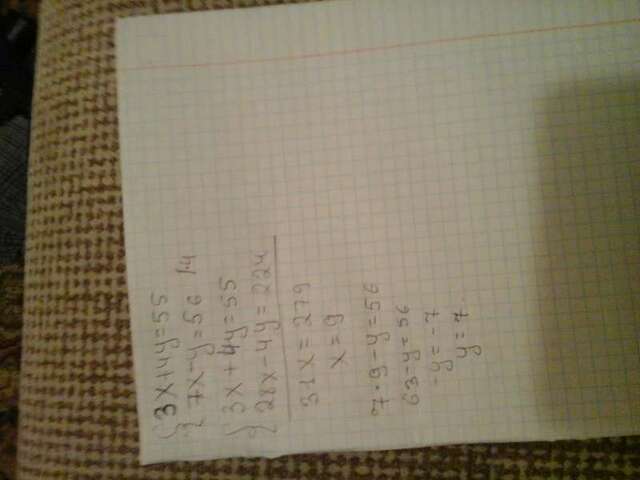 {3x+4y=55
{7x-y=56 |·4
{3x+4y=55
{28x-4y=224
31x=279
x=9
7·9-y=56
63-y=56
-y=-7
y=7.